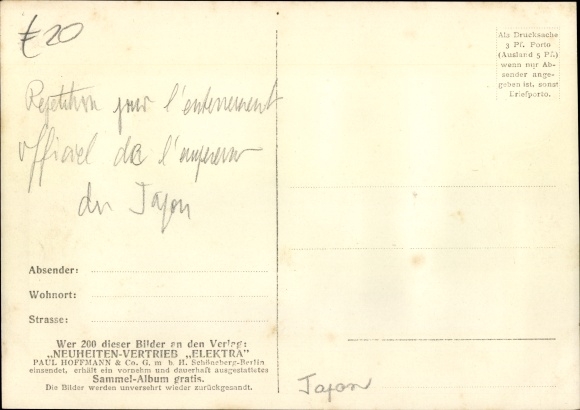 £20
Als Drucksache
3 Pf. Porto
(Ausland 5 Pf.)
wenn nur Ab-
sender ange-
geben ist, sonst
Briefporto.
Repetition pour l'enterrement
officiel de l'empereur
du Japon
Absender:
Wohnort:
Strasse:
Wer 200 dieser Bilder an den Verlag:
„NEUHEITEN-VERTRIEB „ELEKTRA"
PAUL HOFFMANN & Co. G. m. b. H. Schöneberg-Berlin
einsendet, erhält ein vornehm und dauerhaft ausgestattetes
Sammel-Album gratis.
Die Bilder werden unversehrt wieder zurückgesandt.
Japon